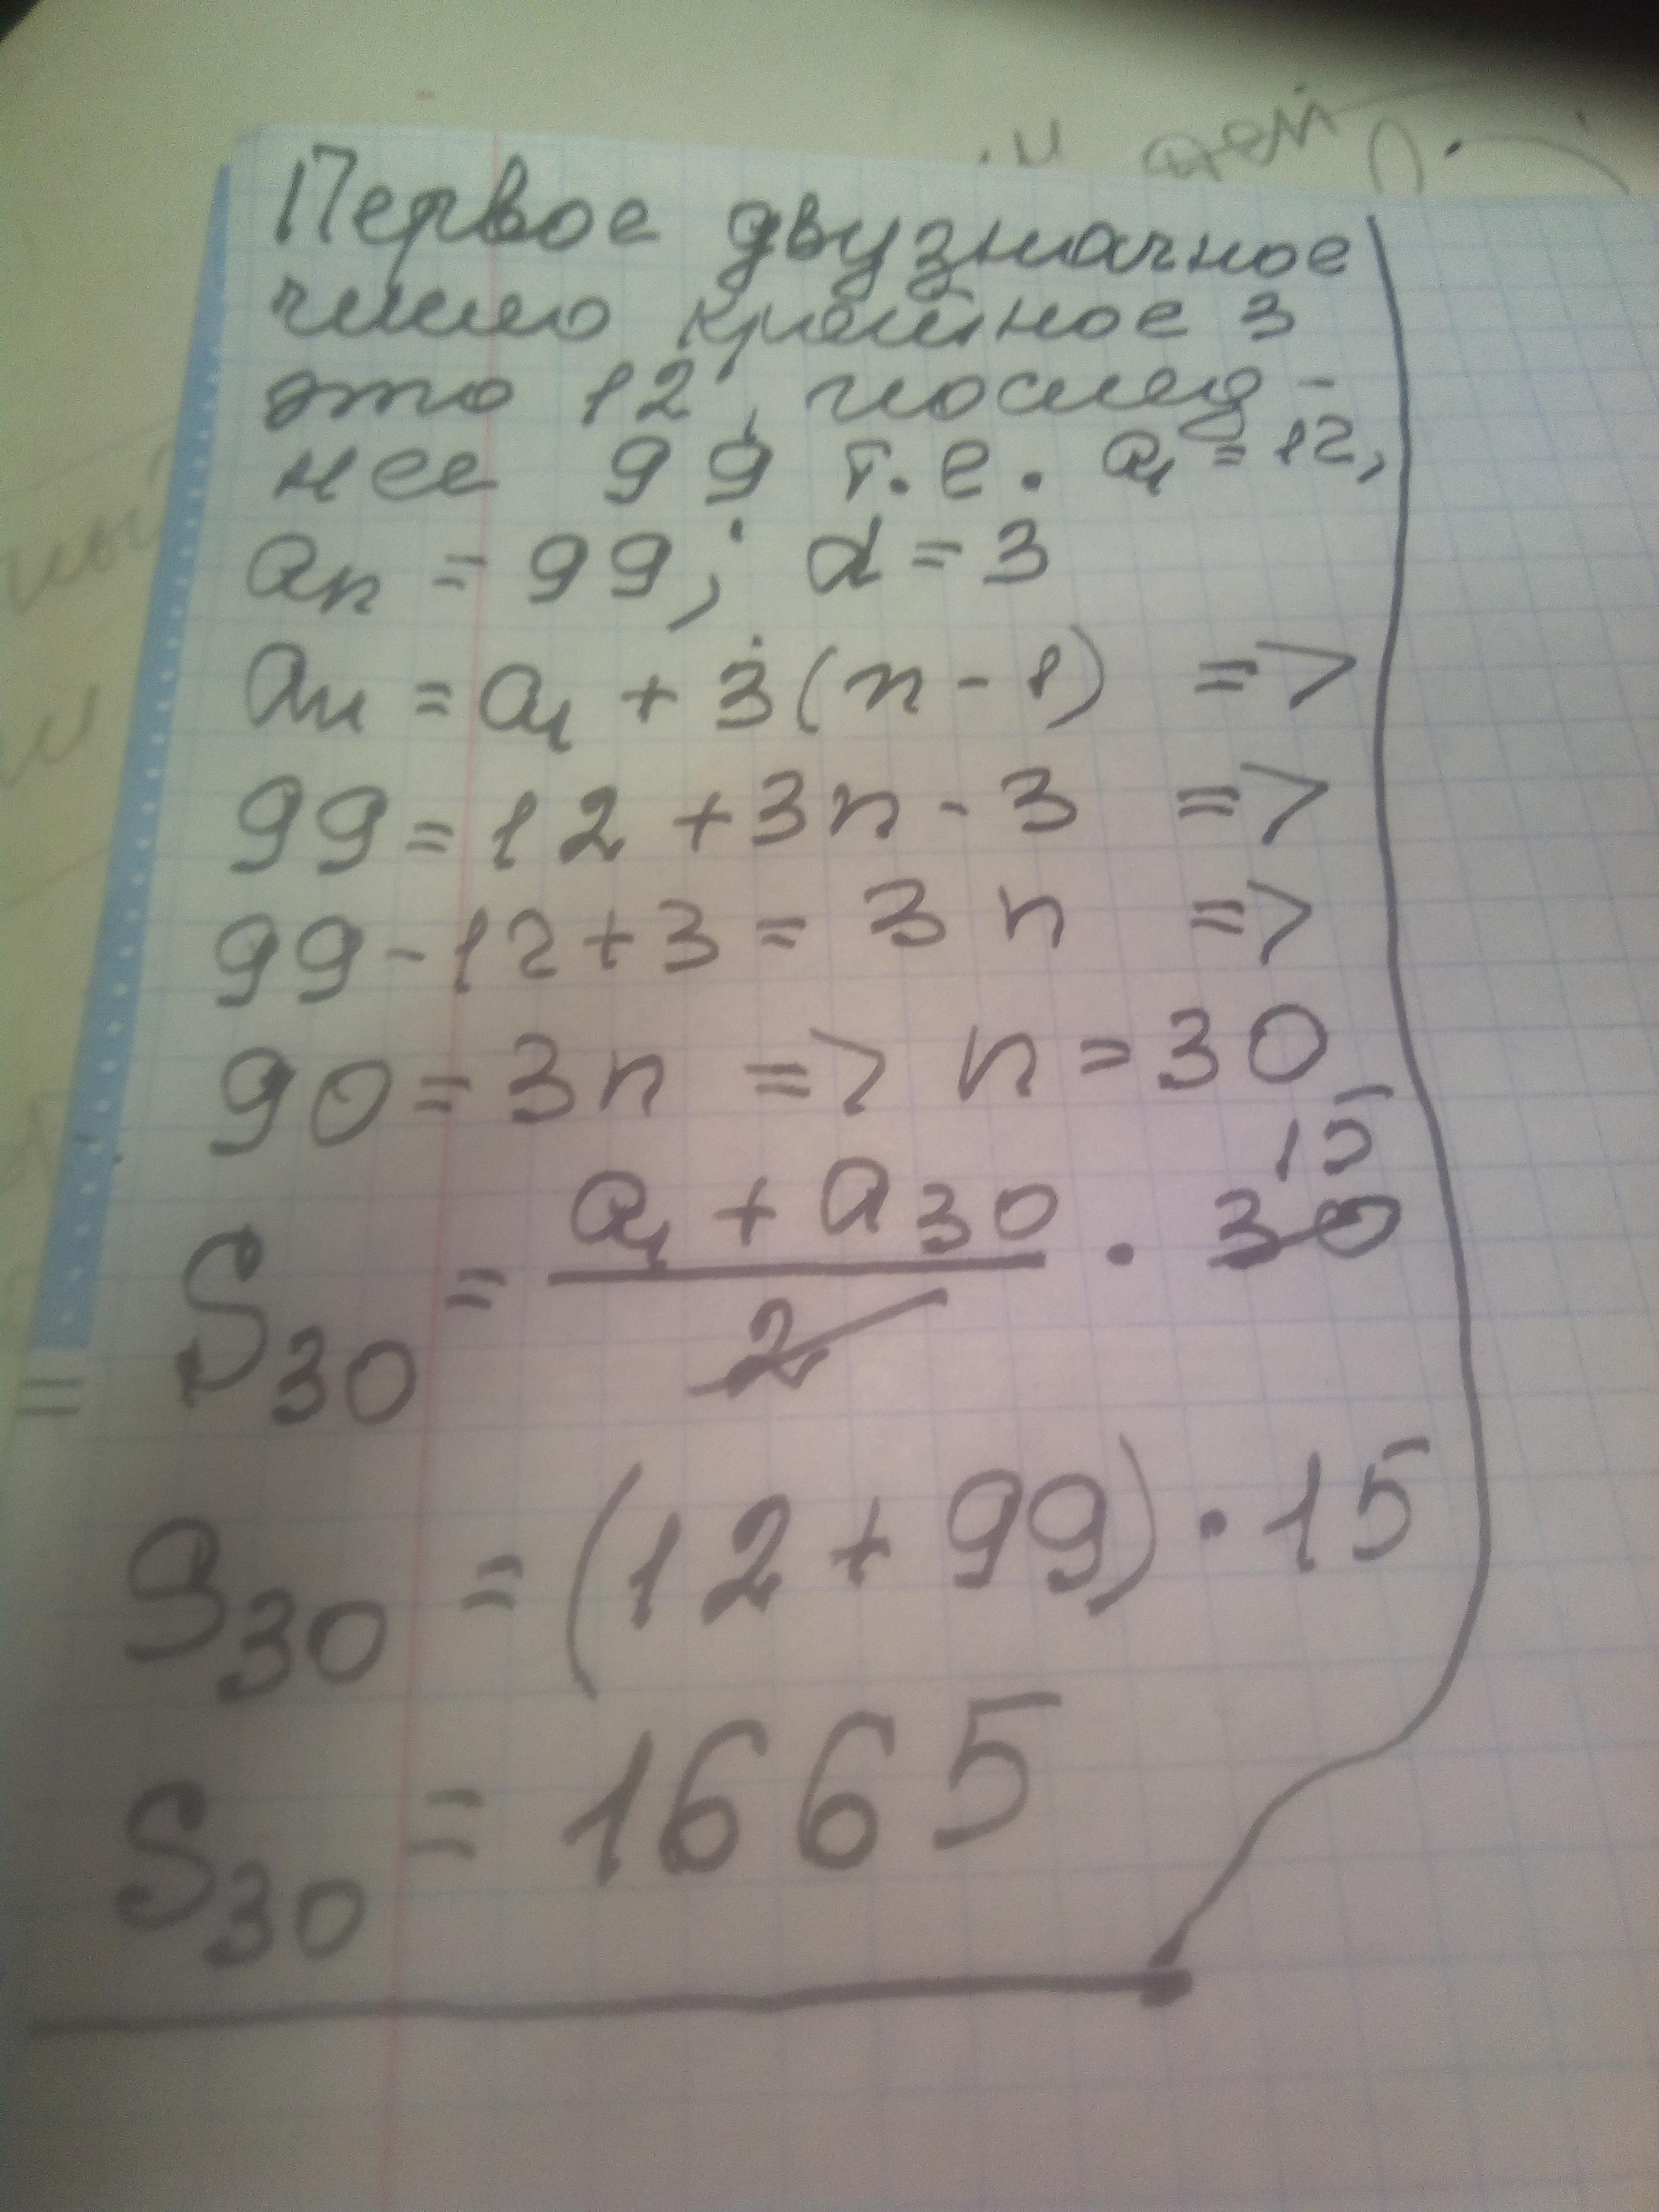 Первое двузначное
число кратное 3
это 12, послед-
нее 99 т.е. a₁ = 12,
aₙ = 99; d = 3
aₙ = a₁ + 3(n - 1) =>
99 = 12 + 3n - 3 =>
99 - 12 + 3 = 3n =>
90 = 3n => n = 30
15
S₃₀ = (a₁ + a₃₀)/2 · 30
S₃₀ = (12 + 99) · 15
S₃₀ = 1665